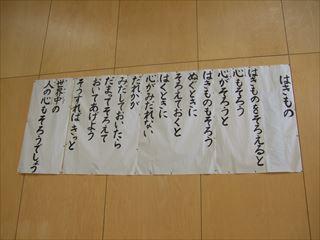 はきもの
はきものをそろえると
心もそろう
心がそろうと
はきものもそろう
ぬぐときに
そろえておくと
はくときに
心がみだれない
だれかが
みだしておいたら
だまってそろえて
おいてあげよう
そうすればきっと
世界中の
人の心もそろうでしょう